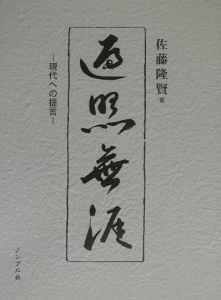 佐藤隆賢 著
遍照無涯
―現代への提言―
ノンブル社